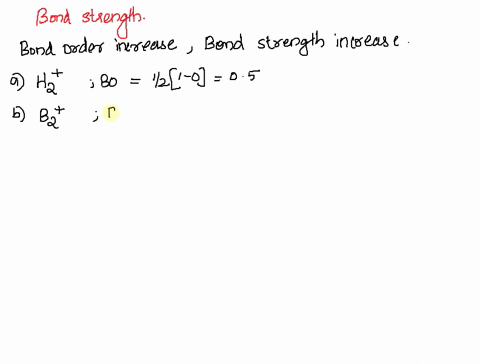 Bond strength.
Bond order increase, Bond strength increase.
a) H₂⁺ ; BO = 1/2[1-0] = 0.5
b) B₂⁺ ;